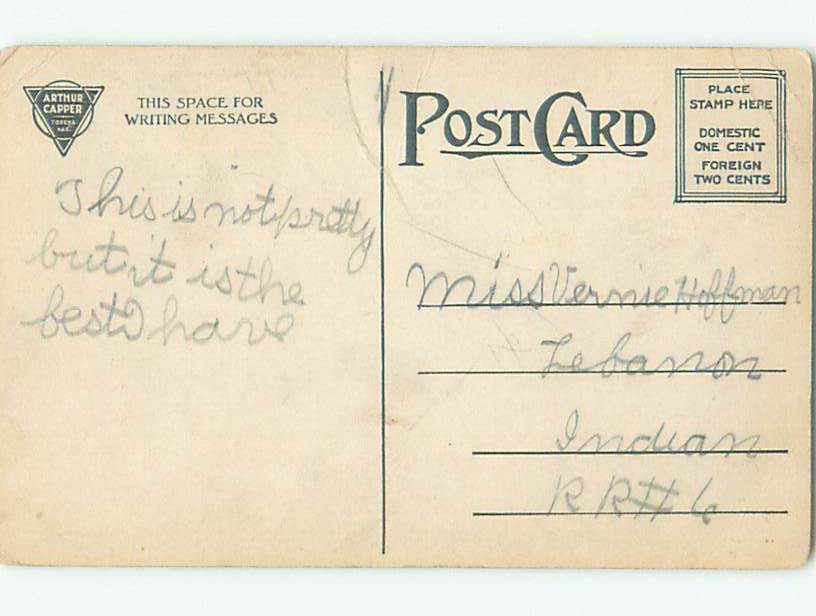 ARTHUR
CAPPER
TOPEKA
KAS.
THIS SPACE FOR
WRITING MESSAGES
POST CARD
PLACE
STAMP HERE
DOMESTIC
ONE CENT
FOREIGN
TWO CENTS
This is not pretty
but it is the
best I have
Miss Vernie Hoffman
Lebanon
Indian
RR# 6